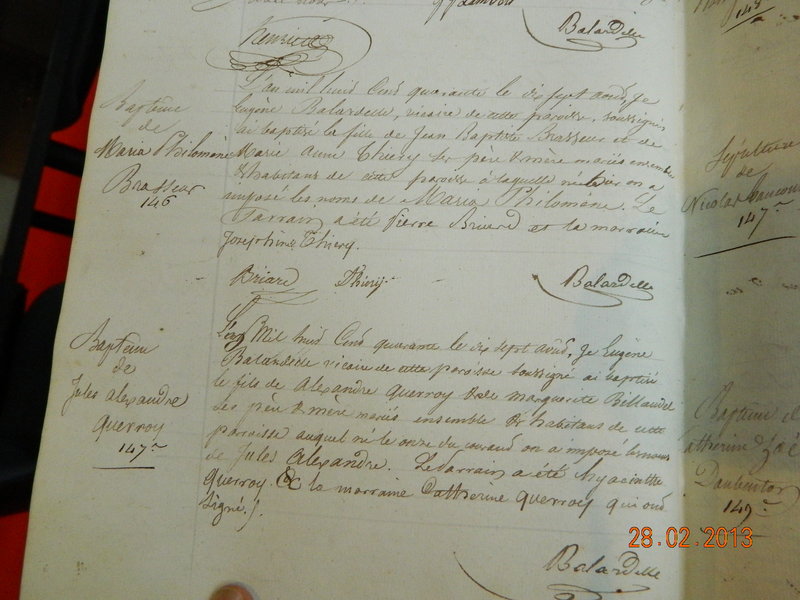 Balardelle
Henriette
Baptême
de
Maria Philomene
Brasseur
146
L'an mil huid Cend quarante le dix sept aoud, Je
Eugène Balardelle, vicaire de cette paroisse, soussigné
ai baptisé la fille de Jean Baptiste Brasseur et de
Marie Anne Thiery ses père & mère mariés ensemble
& habitans de cette paroisse à laquelle née hier on a
imposé les noms de Maria Philomene. Le
Parrain a été Pierre Briard et la marraine
Josephine Thiery.
Briard Thiery
Balardelle
Baptême
de
Jules Alexandre
Querroy
147
L'an Mil huid Cend quarante le dix sept aoud, Je Eugène
Balardelle vicaire de cette paroisse soussigné ai baptisé
le fils de Alexandre Querroy & de marguerite Billaudel
ses père & mère mariés ensemble & habitans de cette
paroisse auquel né le onze du courand on a imposé les noms
de Jules Alexandre. Le Parrain a été hyacinthe
Querroy & la marraine Catherine Querroy qui ond
signé.
Balardelle
Sépulture
de
Nicolas
147
Baptême
Catherine Zoé
Daubenton
149
28.02.2013